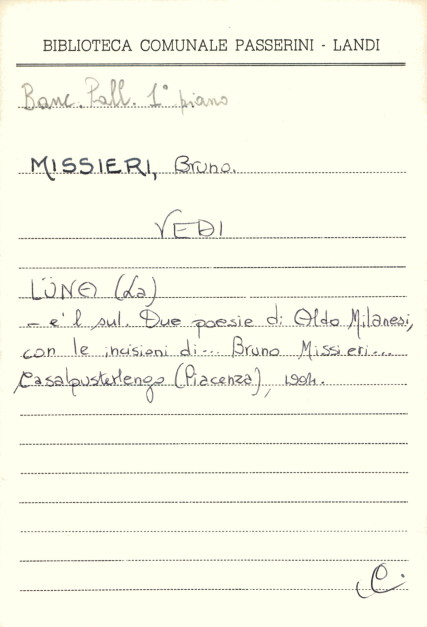 BIBLIOTECA COMUNALE PASSERINI - LANDI
Banc. Pall. 1° piano
MISSIERI, Bruno.
VEDI
LÜNA (La)
- e'l sul. Due poesie di Aldo Milanesi,
con le incisioni di... Bruno Missieri...
Casalpusterlengo (Piacenza), 1994.
C.